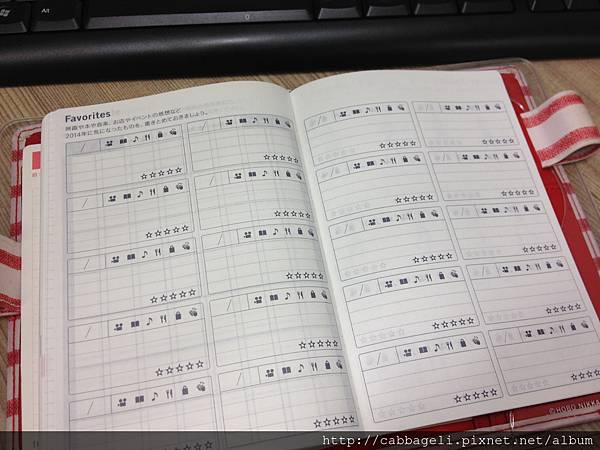 Alt
Favorites
映画や本や音楽、お店やイベントの感想など
2014年に気になったものを、書きとめておきましょう。
© HOBO NIKKA
http://cabbageli.pixnet.net/album